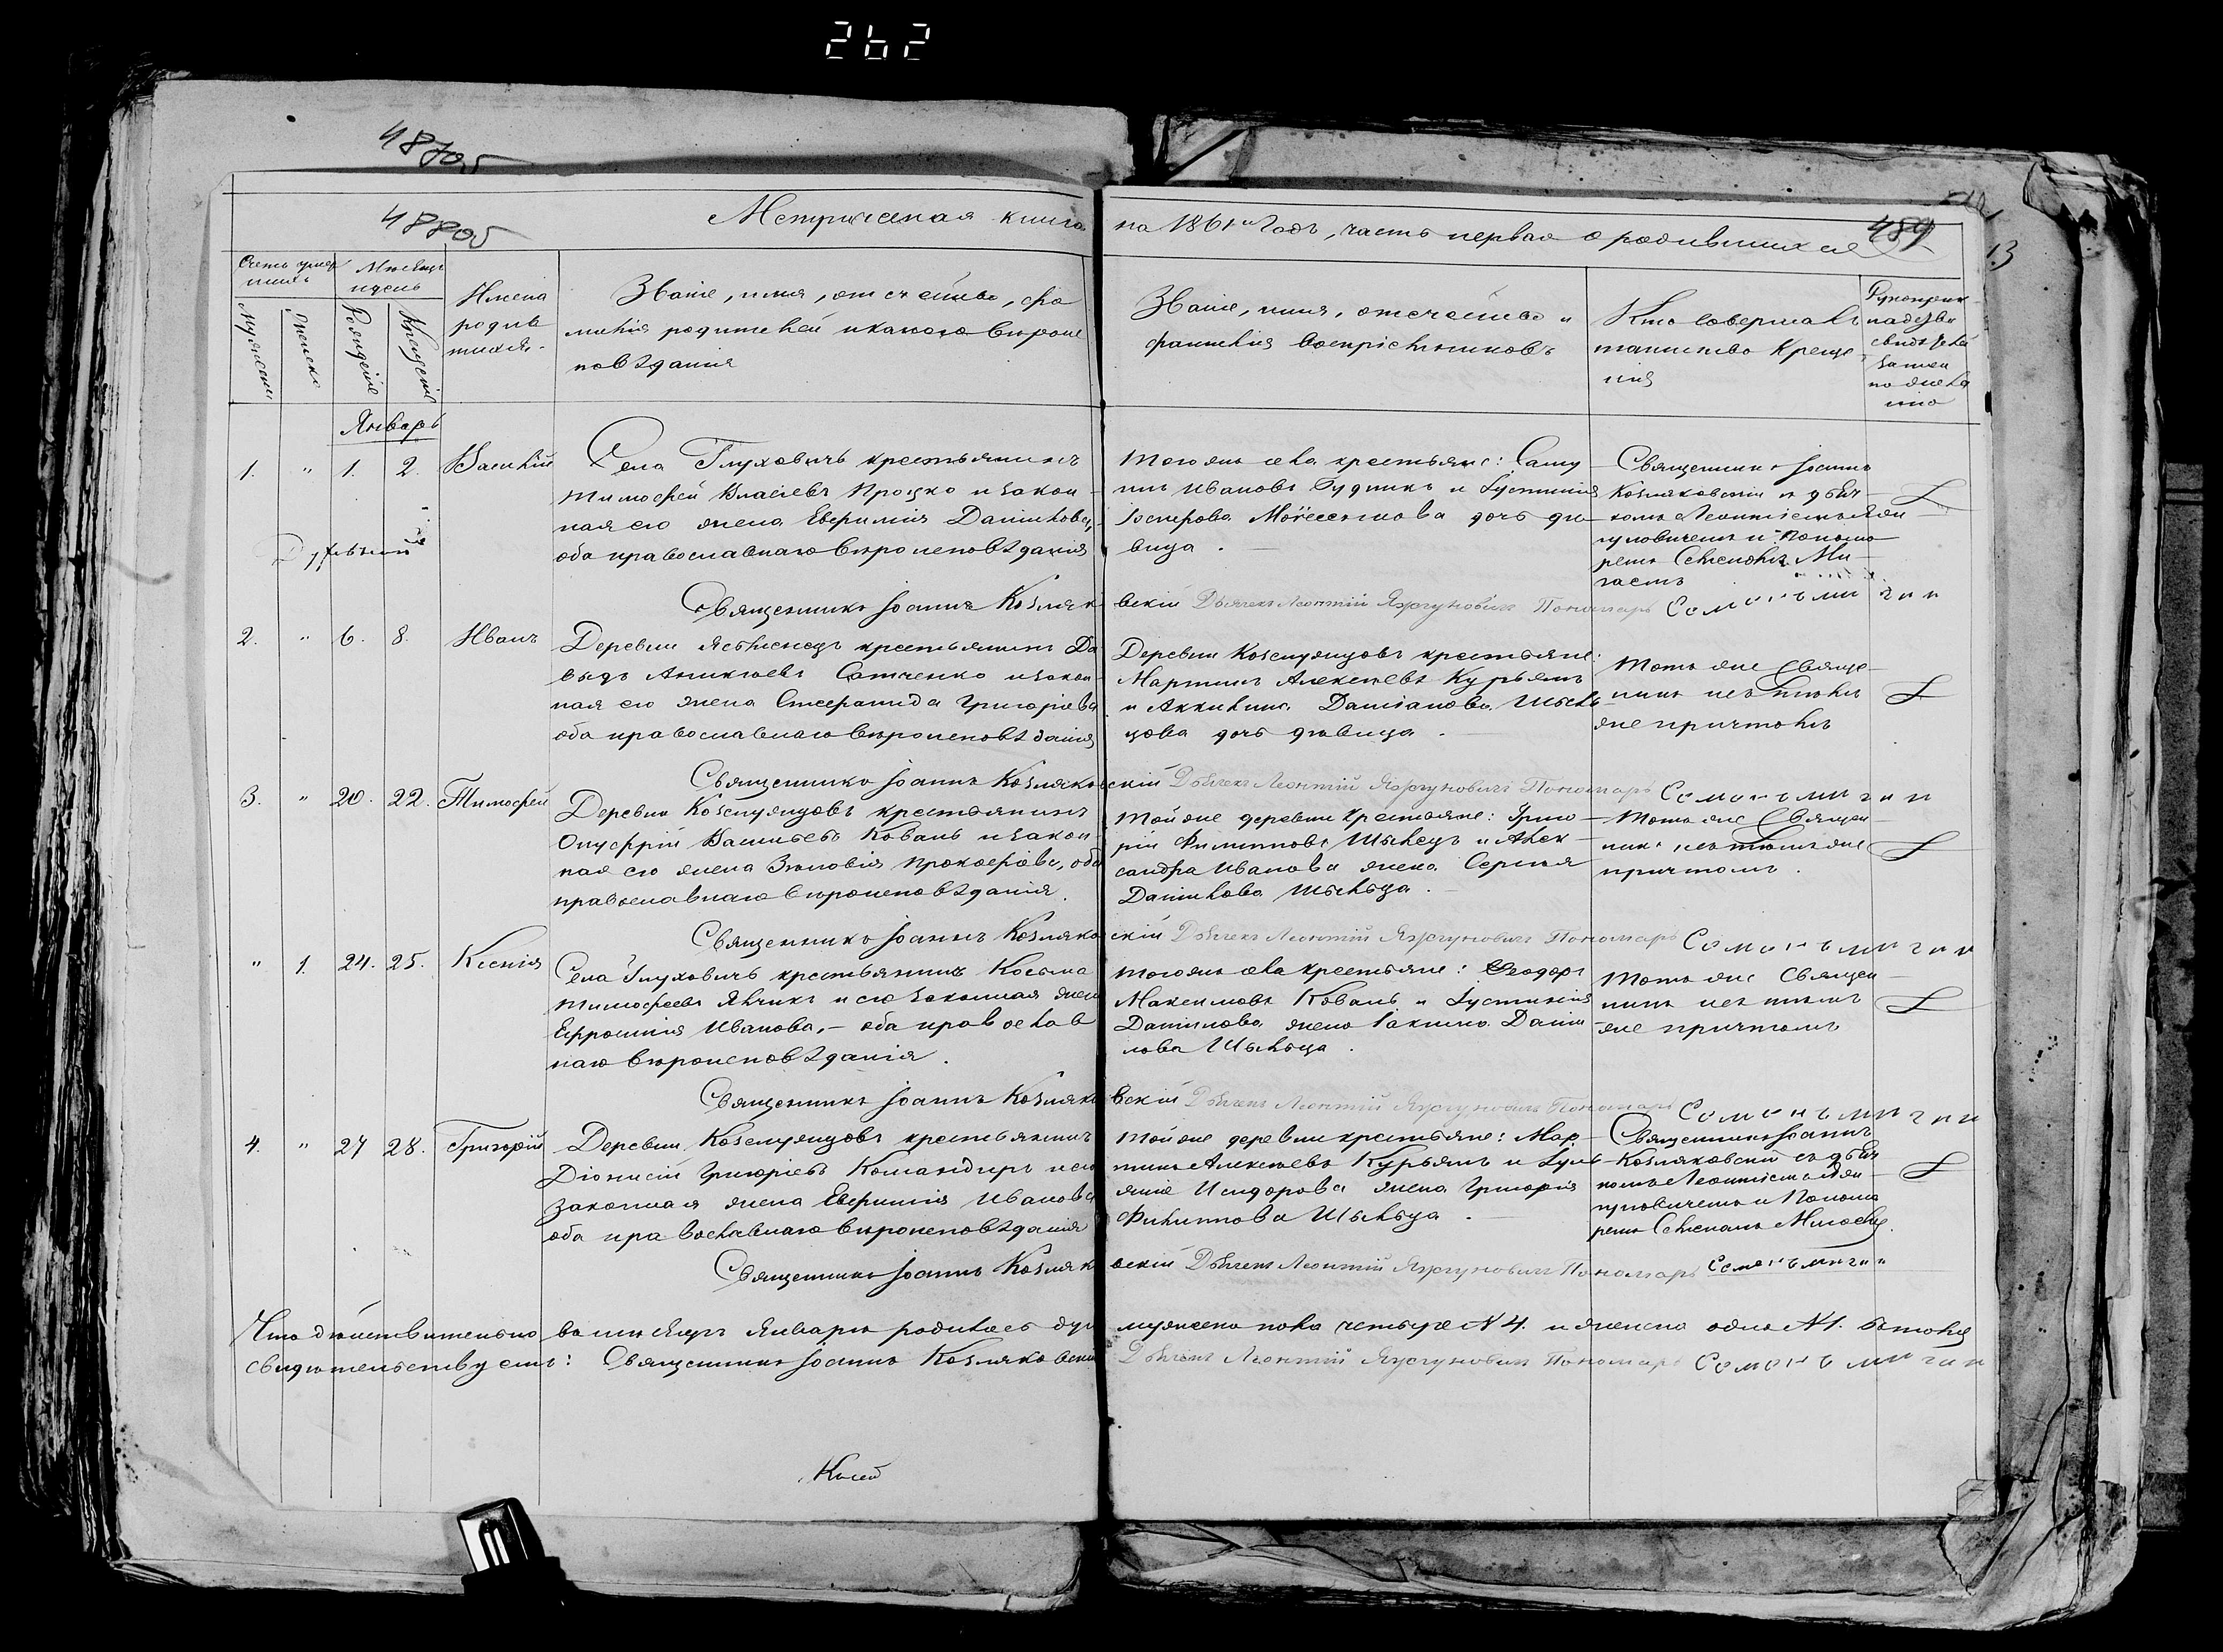 262
48705
48805
Метрическая книга на 1861й Годъ, часть первая о родившихся
489
13
Счетъ
Мѣсяцъ
и день
Имена
родив
шихся.
Званіе, имя, отечество, фа
милія родителей и какого вѣроис
повѣданія
Званіе, имя, отечество и
фамилія воспріемниковъ
Кто совершалъ
таинство Креще
нія
Рукоприк
ладство
свидѣтелей
записи
по жела
нію
Мужеска
Женска
Рожденіе
Крещеніе
Январь
1. " 1. 2. Василій
Села Глуховичъ крестьянинъ
Тимофей Власіевъ Процко и закон
ная его жена Евфимія Даніилова,
оба православнаго вѣроисповѣданія
Тогожъ села крестьяне:
Ивановъ Будникъ и Іустинія
дочь дѣ
вица.
Священникъ Іоаннъ
Козляковскій съ дьяч
комъ Леонтіемъ Яж
гуновичемъ и Понома
ремъ
Священникъ Іоаннъ Козляковскій Дьячекъ Леонтій Яжгуновичъ Пономарь
2. " 6. 8. Иванъ
Деревни крестьянинъ Да
выдъ Аникіевъ Сатченко и закон
ная его жена Стефанида Григоріева
оба православнаго вѣроисповѣданія
Деревни крестьяне:
Мартинъ Алексѣевъ Курьянъ
и Акилина Даміанова Шыль
цова дочь дѣвица.
Тотъ же Священ
никъ съ тѣмъ
же причтомъ
Священникъ Іоаннъ Козляковскій Дьячекъ Леонтій Яжгуновичъ Пономарь
3. " 20. 22. Тимофей
Деревни крестьянинъ
Онуфрій Васильевъ Коваль и закон
ная его жена Зѣновія Прокофіова, оба
православнаго вѣроисповѣданія.
Той же деревни крестьяне: Григо
рій Филиповъ Шылецъ и Алек
сандра Иванова жена Сергія
Даніилова Шыльца.
Тотъ же Священ
никъ съ тѣмъ же
причтомъ.
Священникъ Іоаннъ Козляковскій Дьячекъ Леонтій Яжгуновичъ Пономарь
" 1. 24. 25. Ксенія
Села Глуховичъ крестьянинъ Косьма
Тимофеевъ Янчикъ и его законная жена
Ефросинія Иванова, - оба православ
наго вѣроисповѣданія.
Тогожъ села крестьяне: Феодоръ
Максимовъ Коваль и Іустинія
Данилова жена Іакима Дании
лова Шыльца.
Тотъ же Священ
никъ съ тѣмъ
же причтомъ
Священникъ Іоаннъ Козляковскій Дьячекъ Леонтій Яжгуновичъ Пономарь
4. " 27 28. Григорій
Деревни крестьянинъ
Діонисій Григоріевъ Командиръ и его
законная жена Евфимія Иванова
оба православнаго вѣроисповѣданія
Той же деревни крестьяне: Мар
тинъ Алексѣевъ Курьянъ и Іуль
янія Исидорова жена Григорія
Филиппова Шыльца.
Священникъ Іоаннъ
Козляковскій съ дьяч
комъ Леонтіемъ Яж
гуновичемъ и Понома
ремъ
Священникъ Іоаннъ Козляковскій Дьячекъ Леонтій Яжгуновичъ Пономарь
Что дѣйствительно въ мѣсяцѣ Январѣ родилось душ мужеска пола четыре N 4. и женска одна N 1. въ томъ
свидѣтельствуемъ: Священникъ Іоаннъ Козляковскій Дьячекъ Леонтій Яжгуновичъ Пономарь